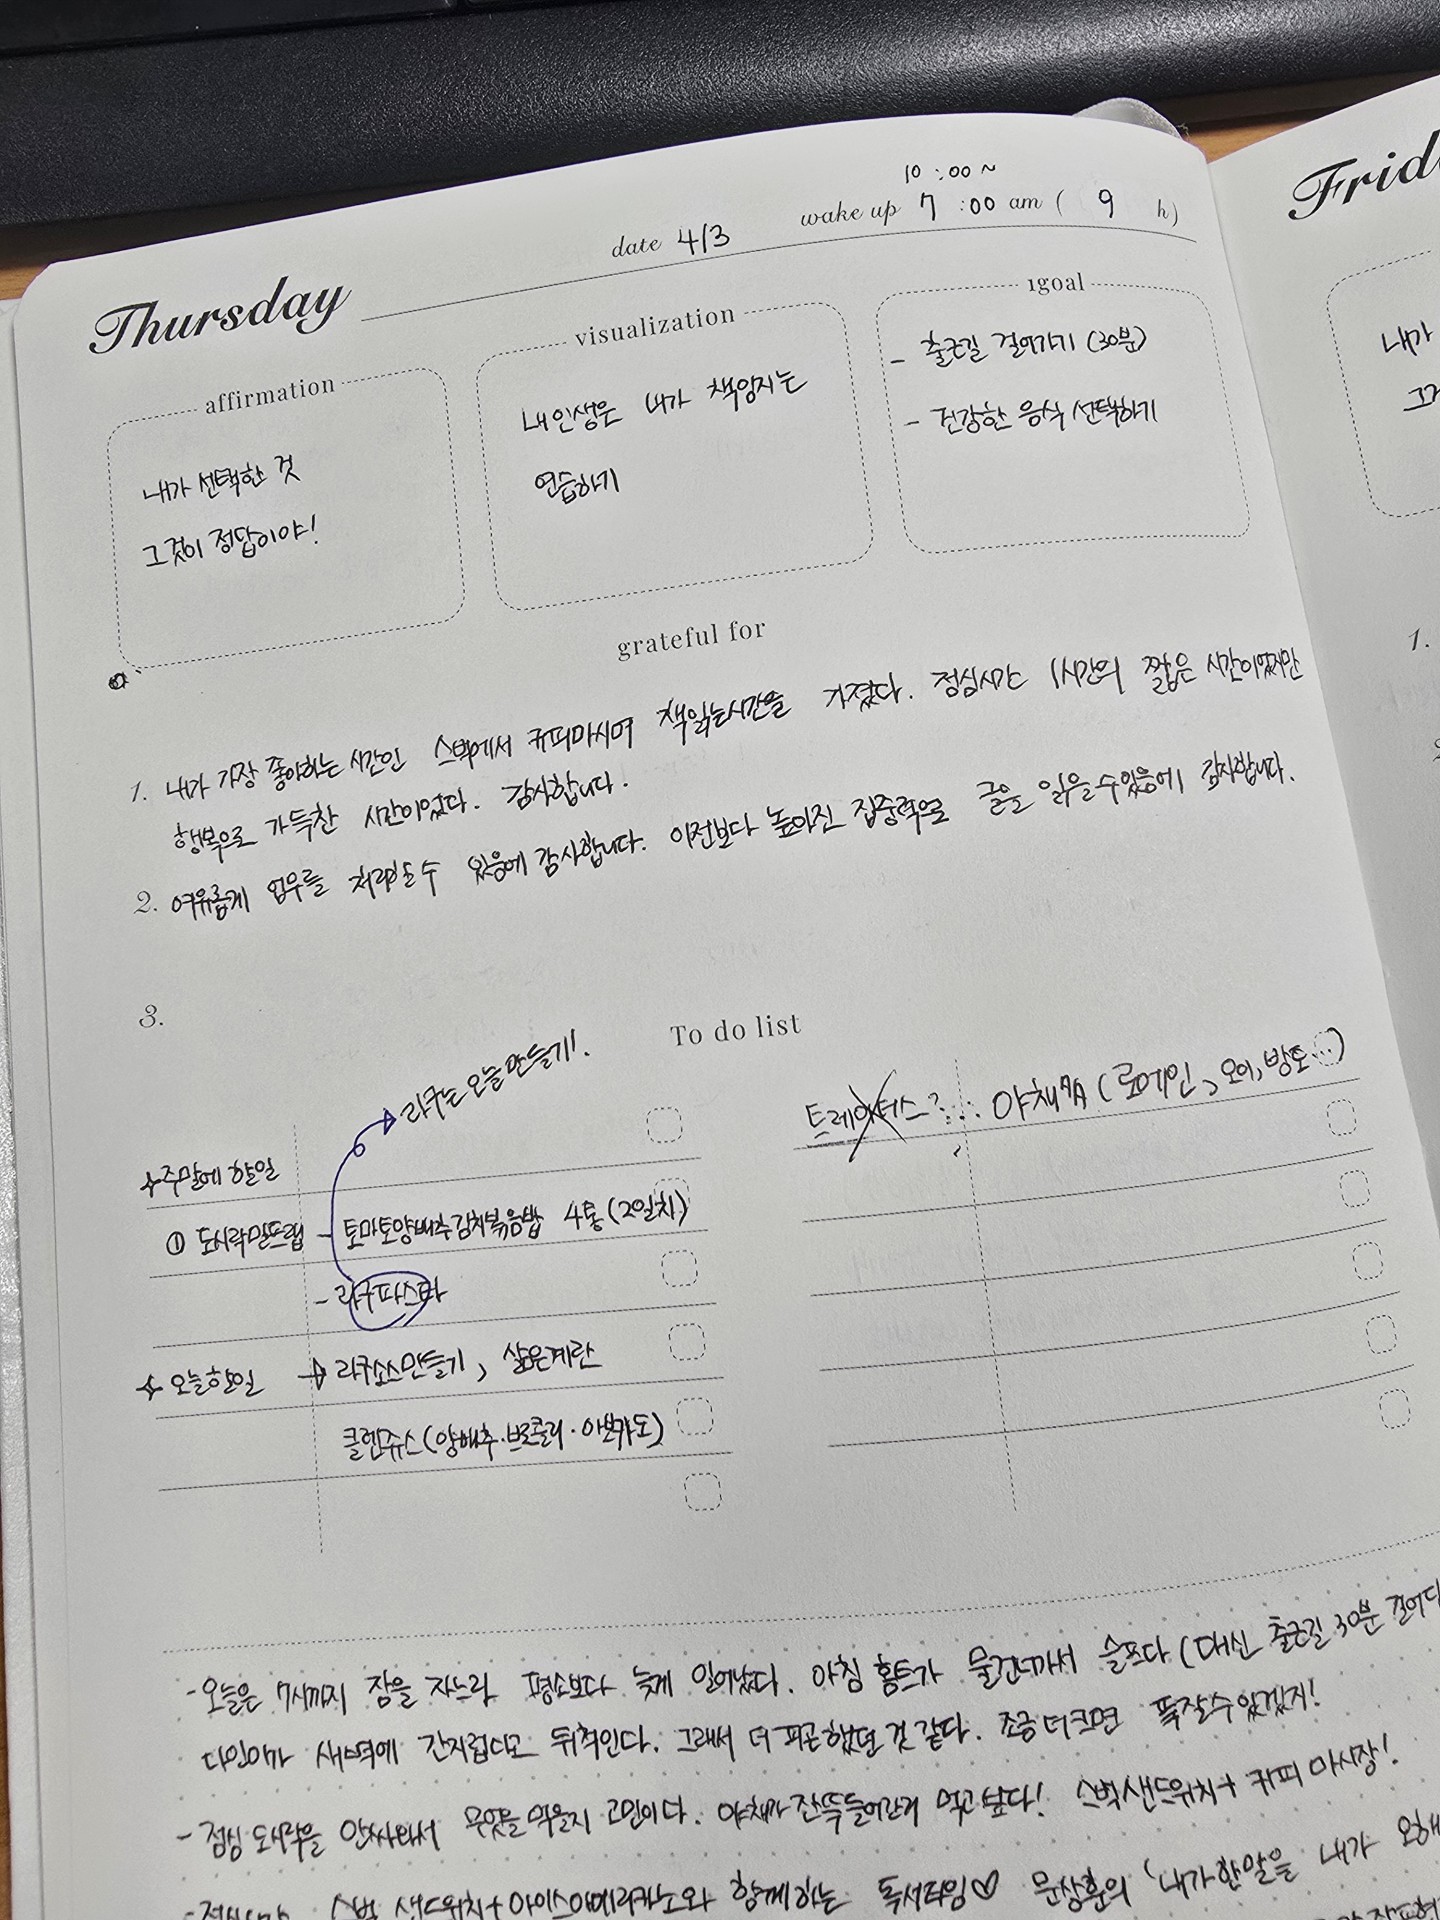 10:00~
date 4/3 wake up 7:00 am ( 9 h)
Thursday
Frid
affirmation
내가 선택한 것
그것이 정답이야!
visualization
내 인생은 내가 책임지는
연습하기
1goal
- 출근길 걸어가기 (30분)
- 건강한 음식 선택하기
내가
grateful for
1. 내가 가장 좋아하는 시간인 스벅에서 커피마시며 책읽는시간을 가졌다. 점심시간 1시간의 짧은 시간이었지만
행복으로 가득찬 시간이었다. 감사합니다.
2. 여유롭게 업무를 처리할수 있음에 감사합니다. 이전보다 높아진 집중력으로 글을 읽을수있음에 감사합니다.
3.
1.
To do list
라구는 오늘만들기!
✦주말에 할일
① 도시락밀프랩 - 토마토양배추김치볶음밥 4통(2일치)
- 라구파스타
✦ 오늘할일 → 라구소스만들기, 삶은계란
클렌쥬스(양배추·브로콜리·아보카도)
트레이더스?... 야채칸 (로메인, 오이, 방토...)
- 오늘은 7시까지 잠을 자느라 평소보다 늦게 일어났다. 아침 홈트가 물건너가서 슬프다 (대신 출근길 30분 걸어
다인이가 새벽에 간지럽다고 뒤척인다. 그래서 더 피곤했던 것 같다. 조금 더 크면 푹잘수있겠지!
- 점심 도시락을 안싸와서 무엇을 먹을지 고민이다. 야채가 잔뜩들어간거 먹고싶다! 스벅샌드위치+커피 마시장!
- 점심시간 스벅 샌드위치+아이스아메리카노와 함께하는 독서타임♡ 문상훈의 '내가 한 말을 내가 오해